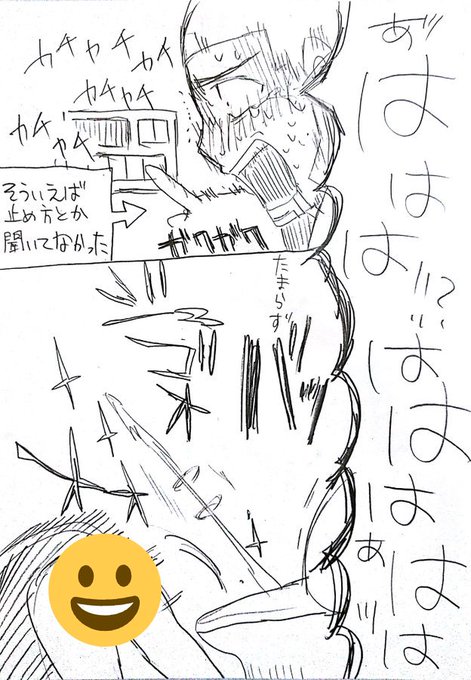 あ゛はははは
はははぁははは
カチャカチャ
カチャカチャ
カチャカチャ
そういえば
止め方とか
聞いてなかった
ガクガク
たまらず